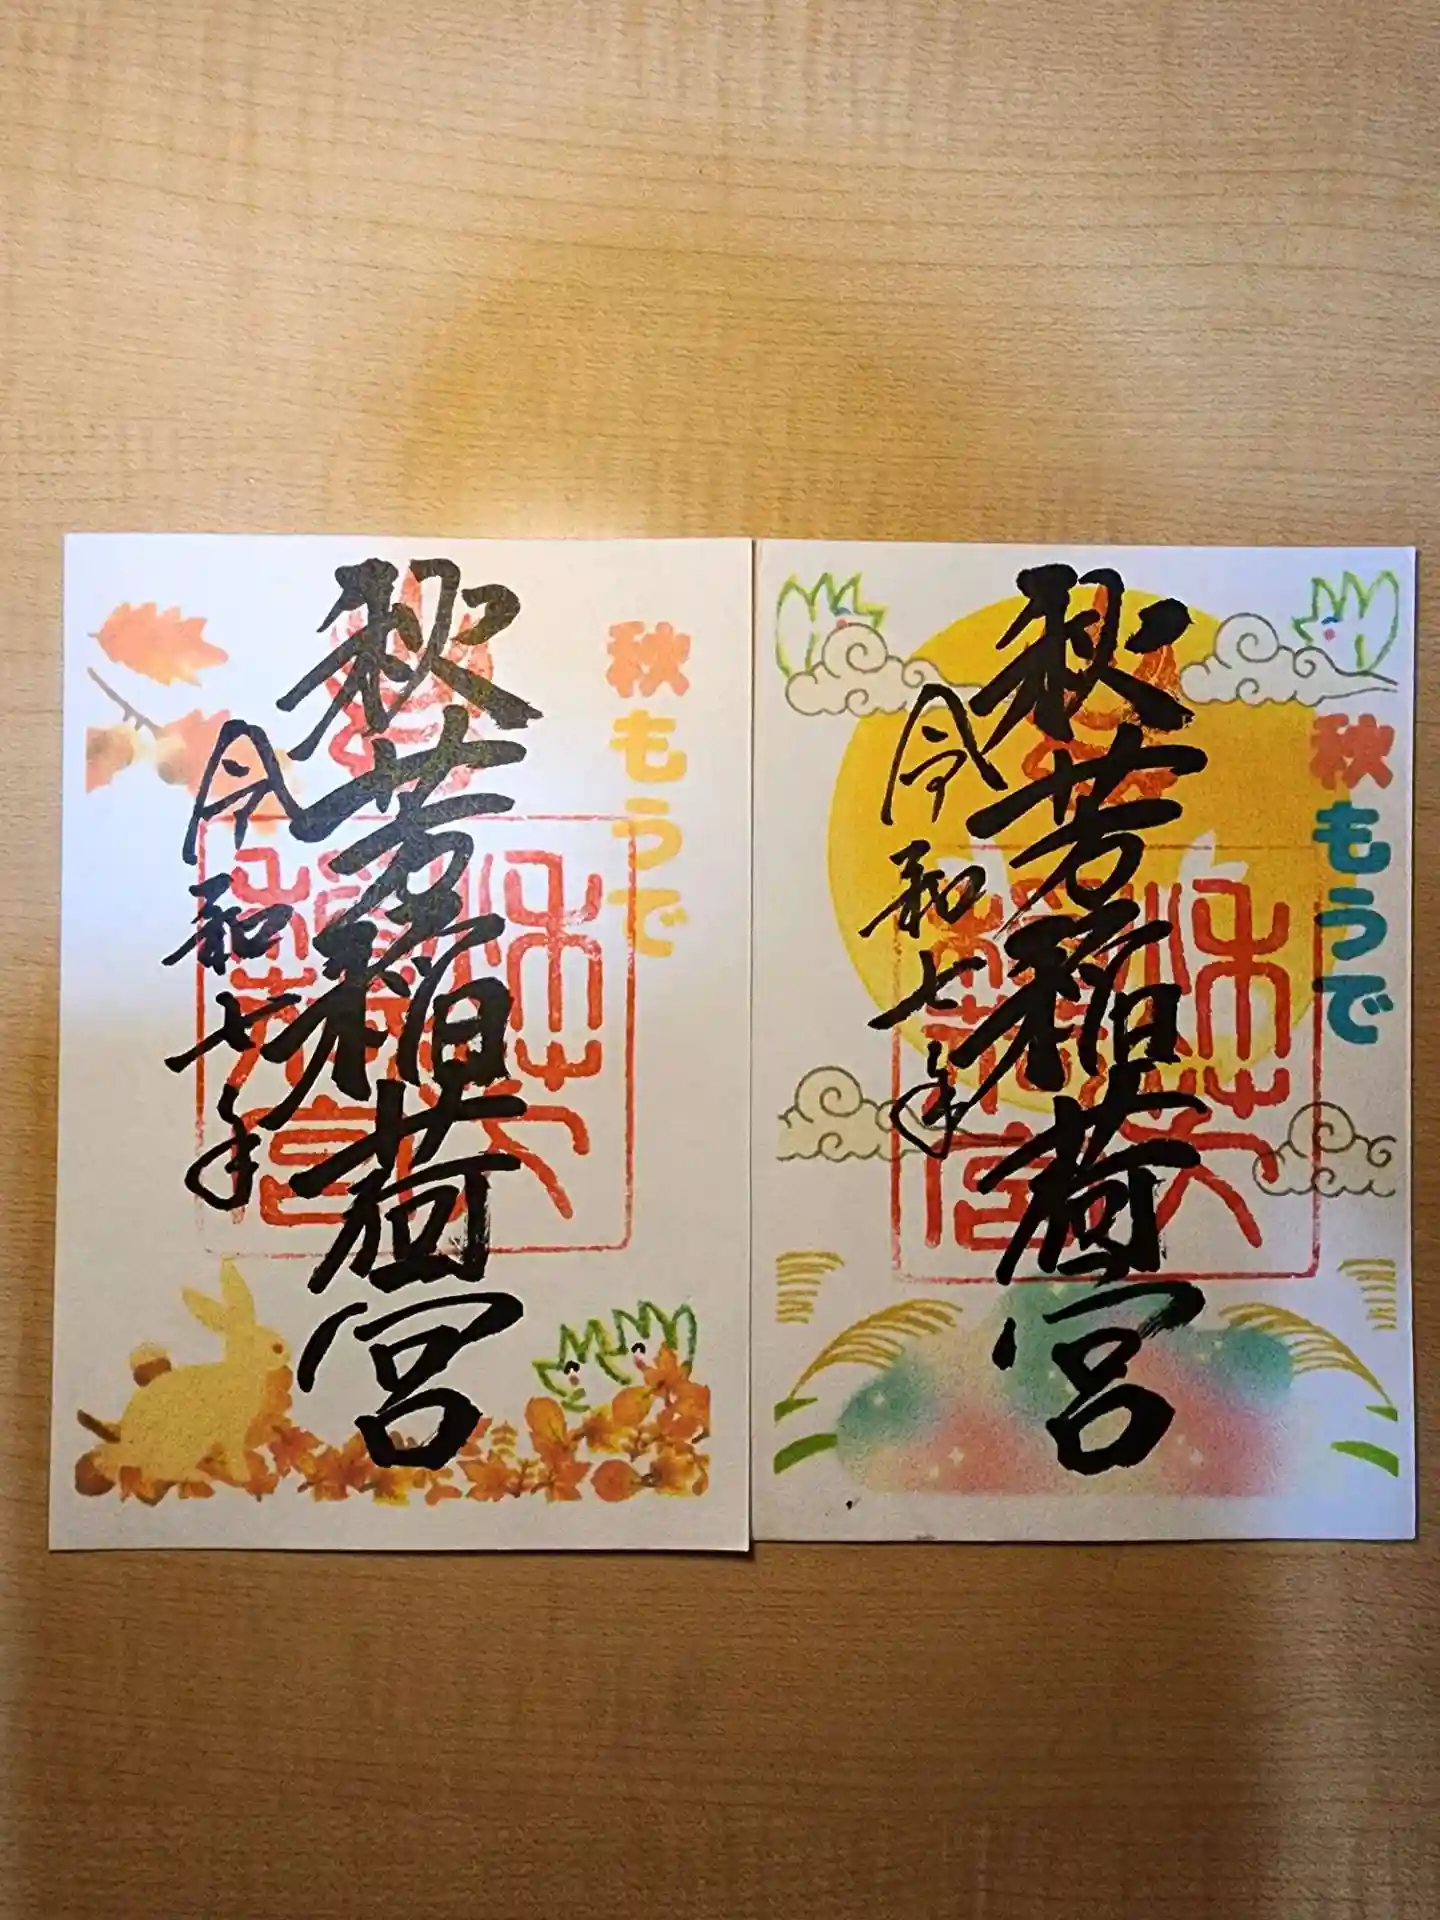 秋もうで
秋芳稲荷宮
令和七年
秋もうで
秋芳稲荷宮
令和七年